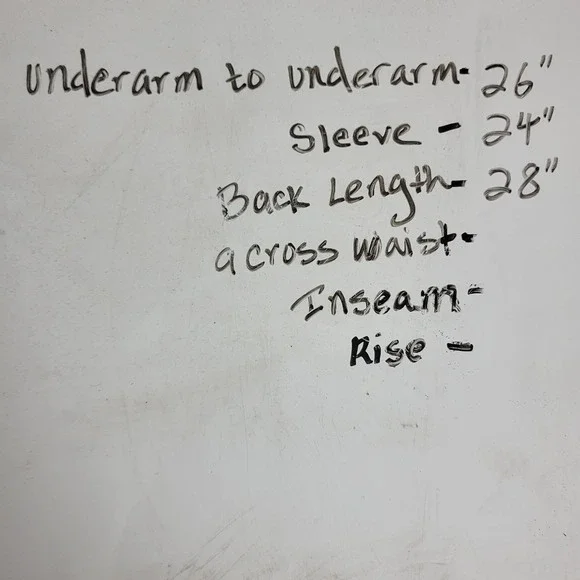 underarm to underarm- 26"
Sleeve - 24"
Back Length- 28"
across waist-
Inseam-
Rise -